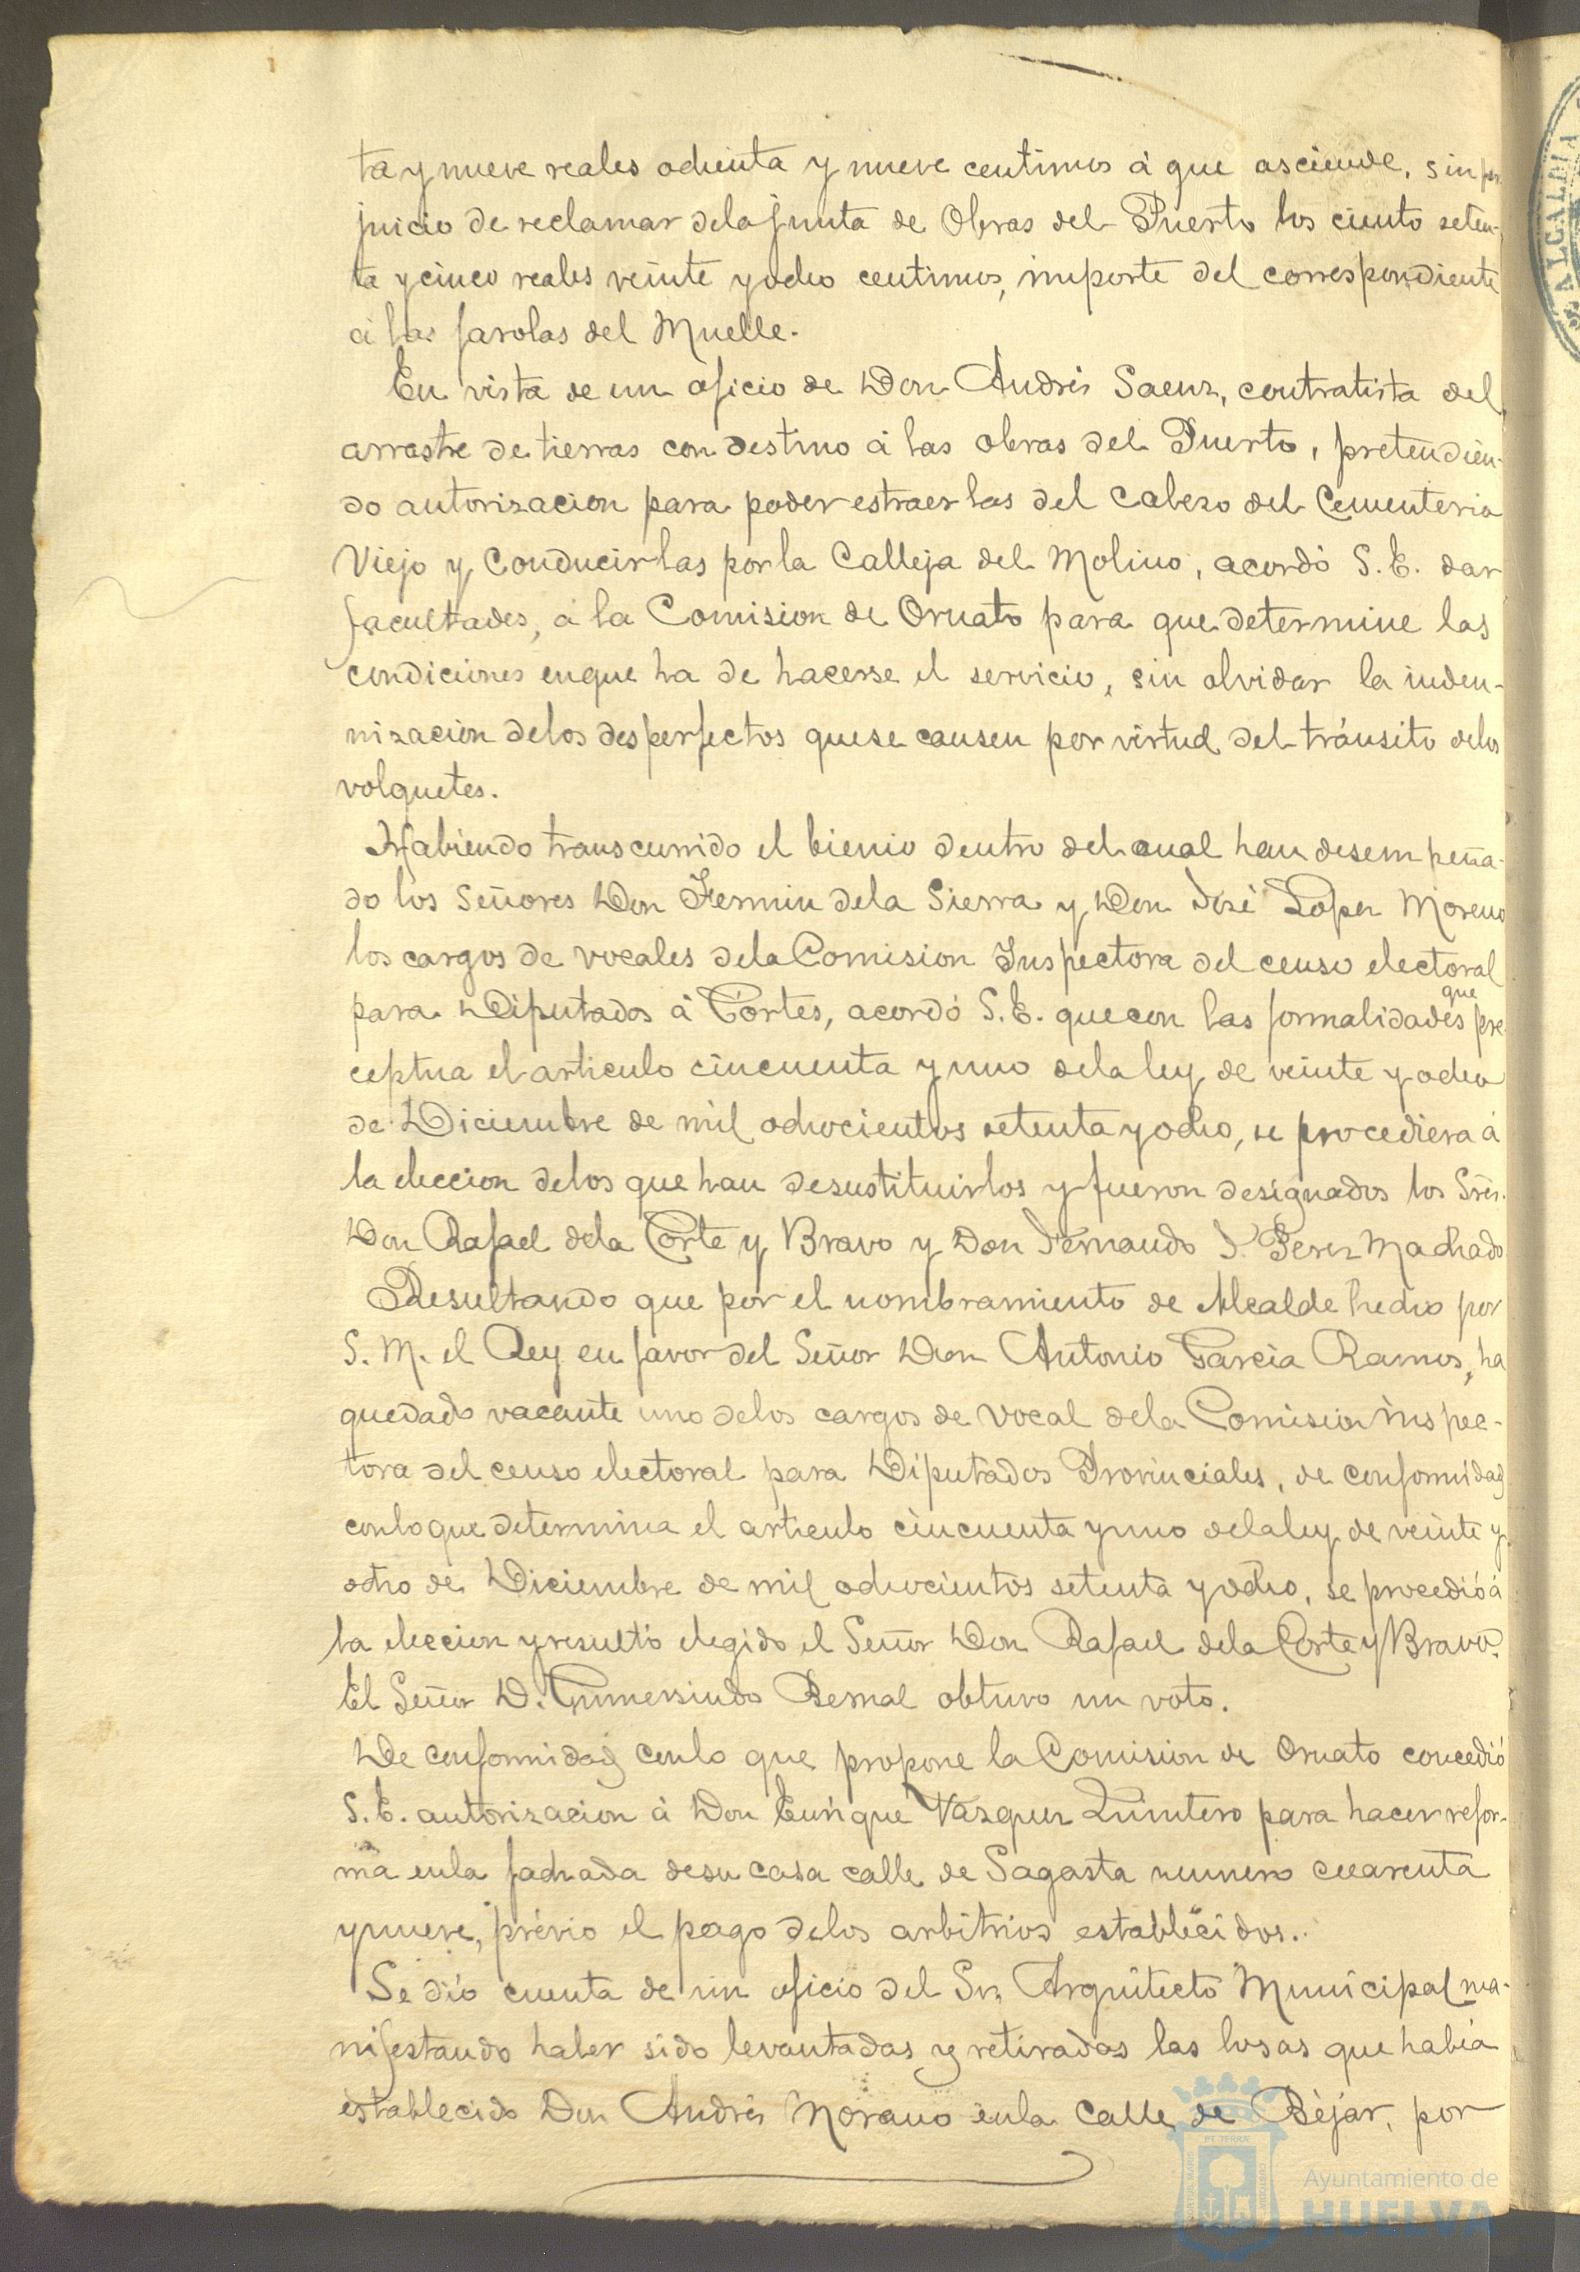 ta y nueve reales ochenta y nueve centimos á que asciende, sin per
juicio de reclamar dela Junta de Obras del Puerto los ciento seten-
ta y cinco reales veinte y ocho centimos, importe del correspondiente
á las farolas del Muelle.
En vista de un oficio de Don Andrés Saenz, contratista del
arrastre de tierras con destino á las obras del Puerto, pretendien-
do autorizacion para poder estraerlas del Cabezo del Cementerio
Viejo y Conducirlas por la Calleja del Molino, acordó S. E. dar
facultades, á la Comision de Ornato para que determine las
condiciones enque ha de hacerse el servicio, sin olvidar la indem-
nizacion delos desperfectos quese causen por virtud del tránsito delos
volquetes.
Habiendo transcurrido el bienio dentro del cual han desempeña-
do los Señores Don Fermin dela Sierra y Don José Lopez Moreno
los cargos de vocales dela Comision Inspectora del censo electoral
para Diputados á Córtes, acordó S. E. que con las formalidades que pre
ceptua el articulo cincuenta y uno dela ley de veinte y ocho
de Diciembre de mil ochocientos setenta y ocho, se procediera á
la eleccion delos que han desustituirlos y fueron designados los Sres.
Don Rafael dela Corte y Bravo y Don Fernando J. Perez Machado
Resultando que por el nombramiento de Alcalde hecho por
S. M. el Rey en favor del Señor Don Antonio Garcia Ramos, ha
quedado vacante uno delos cargos de vocal dela Comision inspec-
tora del censo electoral para Diputados Provinciales, de conformidad
conlo que determina el articulo cincuenta y uno dela ley de veinte y
ocho de Diciembre de mil ochocientos setenta y ocho, se procedió á
la eleccion y resultó elegido el Señor Don Rafael dela Corte y Bravo.
El Señor D. Gumersindo Bernal obtuvo un voto.
De conformidad conlo que propone la Comision de Ornato concedió
S. E. autorizacion á Don Enrique Vazquez Quintero para hacer refor-
ma enla fachada desu casa calle de Sagasta numero cuarenta
y nueve, prévio el pago delos arbitrios establecidos.
Se dió cuenta de un oficio del Sr. Arquitecto Municipal ma-
nifestando haber sido levantadas y retiradas las losas que habia
establecido Don Andrés Morano enla Calle de Béjar, por
ALCALDIA
Ayuntamiento de
HUELVA